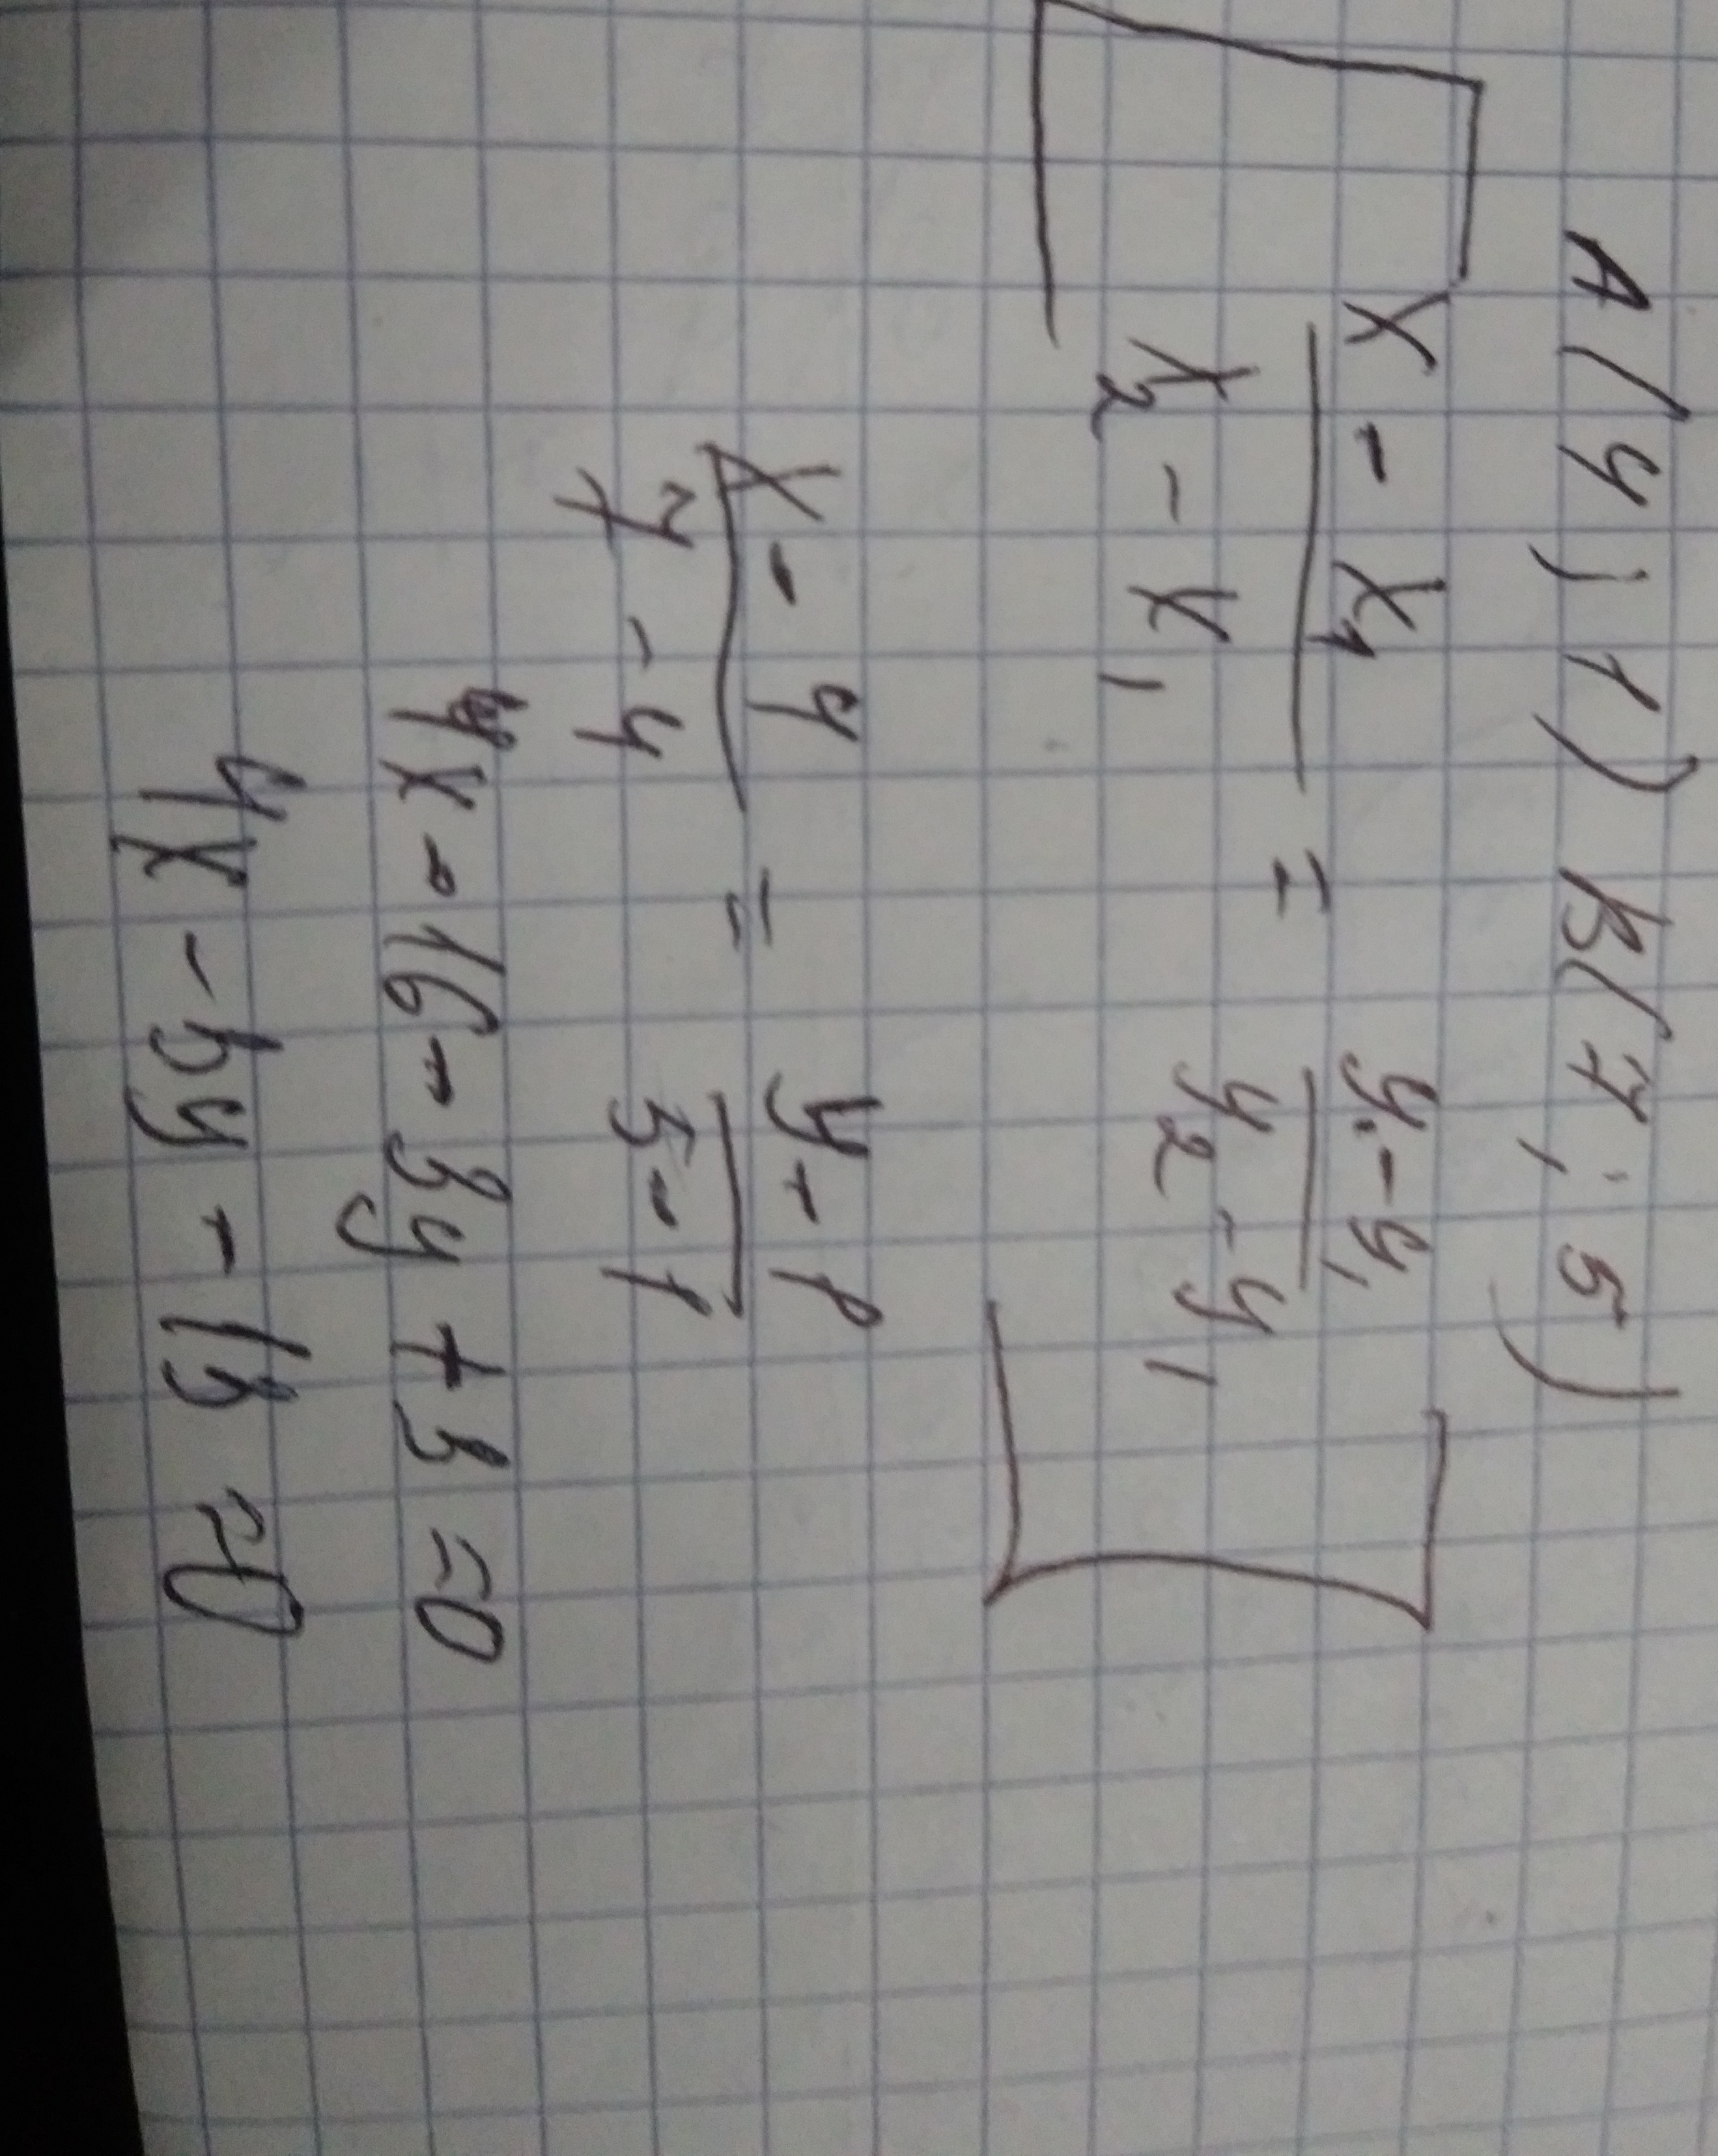 A(4; 1) B(7; 5)
[ (x - x₁)/(x₂ - x₁) = (y - y₁)/(y₂ - y₁) ]
(x - 4)/(7 - 4) = (y - 1)/(5 - 1)
4x - 16 - 3y + 3 = 0
4x - 3y - 13 = 0